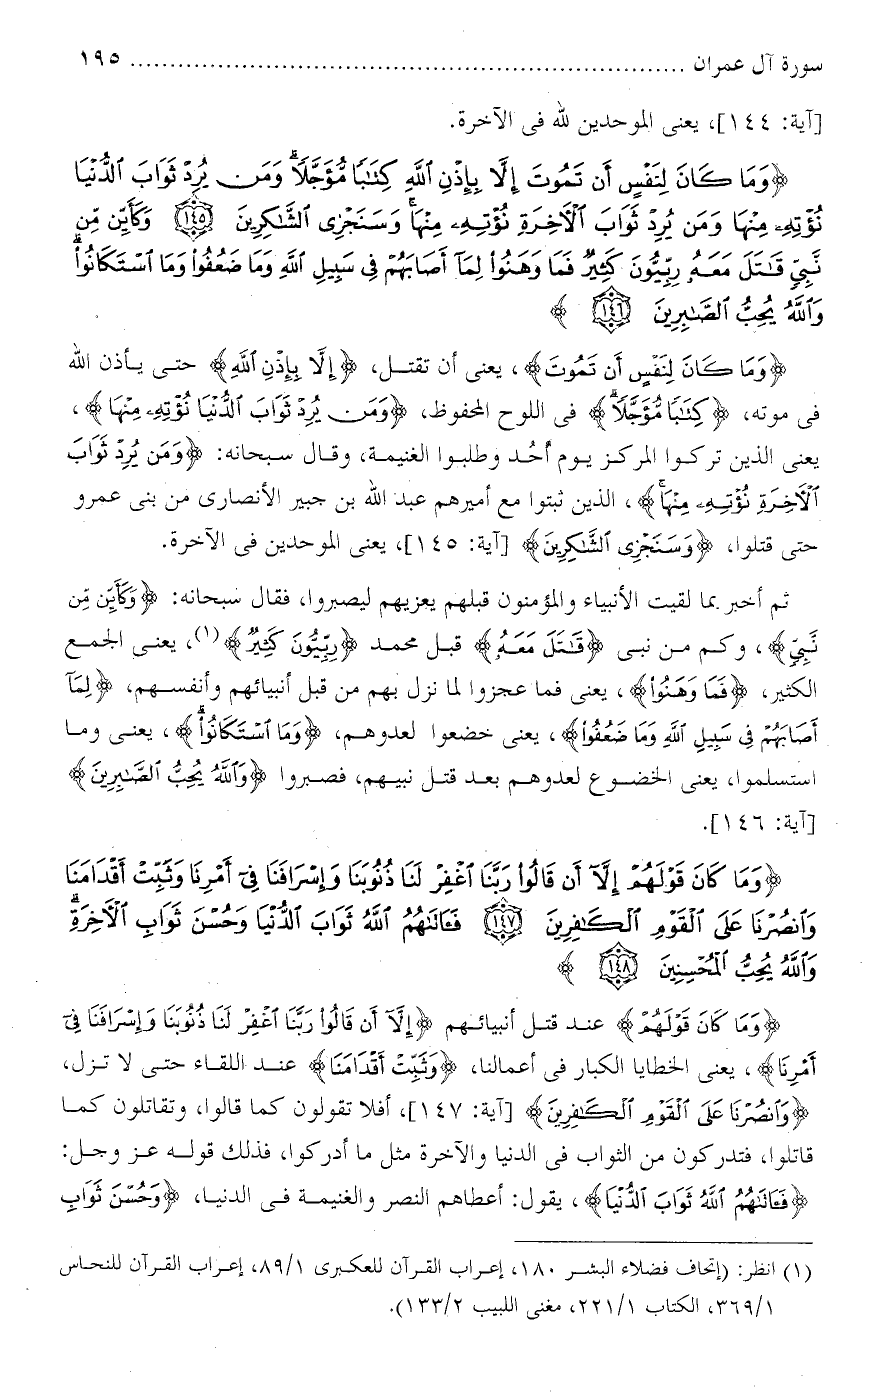 سورة آل عمران ........................................................................ ١٩٥
[آية: ١٤٤]، يعنى الموحدين لله فى الآخرة.
﴿وَمَا كَانَ لِنَفْسٍ أَن تَمُوتَ إِلَّا بِإِذْنِ اللَّهِ كِتَٰبًا مُّؤَجَّلًاۗ وَمَن يُرِدْ ثَوَابَ الدُّنْيَا
نُؤْتِهِۦ مِنْهَا وَمَن يُرِدْ ثَوَابَ الْآخِرَةِ نُؤْتِهِۦ مِنْهَاۚ وَسَنَجْزِى الشَّٰكِرِينَ ﴿١٤٥﴾ وَكَأَيِّن مِّن
نَّبِىٍّ قَٰتَلَ مَعَهُۥ رِبِّيُّونَ كَثِيرٌ فَمَا وَهَنُوا۟ لِمَآ أَصَابَهُمْ فِى سَبِيلِ اللَّهِ وَمَا ضَعُفُوا۟ وَمَا اسْتَكَانُوا۟ۗ
وَاللَّهُ يُحِبُّ الصَّٰبِرِينَ ﴿١٤٦﴾ ﴾
﴿وَمَا كَانَ لِنَفْسٍ أَن تَمُوتَ﴾، يعنى أن تقتل، ﴿إِلَّا بِإِذْنِ اللَّهِ﴾ حتى يأذن الله
فى موته، ﴿كِتَٰبًا مُّؤَجَّلًاۗ﴾ فى اللوح المحفوظ، ﴿وَمَن يُرِدْ ثَوَابَ الدُّنْيَا نُؤْتِهِۦ مِنْهَا﴾،
يعنى الذين تركوا المركز يوم أُحُد وطلبوا الغنيمة، وقال سبحانه: ﴿وَمَن يُرِدْ ثَوَابَ
الْآخِرَةِ نُؤْتِهِۦ مِنْهَاۚ﴾، الذين ثبتوا مع أميرهم عبد الله بن جبير الأنصارى من بنى عمرو
حتى قتلوا، ﴿وَسَنَجْزِى الشَّٰكِرِينَ﴾ [آية: ١٤٥]، يعنى الموحدين فى الآخرة.
ثم أخبر بما لقيت الأنبياء والمؤمنون قبلهم يعزيهم ليصبروا، فقال سبحانه: ﴿وَكَأَيِّن مِّن
نَّبِىٍّ﴾، وكم من نبى ﴿قَٰتَلَ مَعَهُۥ﴾ قبل محمد ﴿رِبِّيُّونَ كَثِيرٌ﴾(١)، يعنى الجمع
الكثير، ﴿فَمَا وَهَنُوا۟﴾، يعنى فما عجزوا لما نزل بهم من قبل أنبيائهم وأنفسهم، ﴿لِمَآ
أَصَابَهُمْ فِى سَبِيلِ اللَّهِ وَمَا ضَعُفُوا۟﴾، يعنى خضعوا لعدوهم، ﴿وَمَا اسْتَكَانُوا۟ۗ﴾، يعنى وما
استسلموا، يعنى الخضوع لعدوهم بعد قتل نبيهم، فصبروا ﴿وَاللَّهُ يُحِبُّ الصَّٰبِرِينَ﴾
[آية: ١٤٦].
﴿وَمَا كَانَ قَوْلَهُمْ إِلَّآ أَن قَالُوا۟ رَبَّنَا اغْفِرْ لَنَا ذُنُوبَنَا وَإِسْرَافَنَا فِىٓ أَمْرِنَا وَثَبِّتْ أَقْدَامَنَا
وَانصُرْنَا عَلَى الْقَوْمِ الْكَٰفِرِينَ ﴿١٤٧﴾ فَـَٔاتَىٰهُمُ اللَّهُ ثَوَابَ الدُّنْيَا وَحُسْنَ ثَوَابِ الْآخِرَةِۗ
وَاللَّهُ يُحِبُّ الْمُحْسِنِينَ ﴿١٤٨﴾ ﴾
﴿وَمَا كَانَ قَوْلَهُمْ﴾ عند قتل أنبيائهم ﴿إِلَّآ أَن قَالُوا۟ رَبَّنَا اغْفِرْ لَنَا ذُنُوبَنَا وَإِسْرَافَنَا فِىٓ
أَمْرِنَا﴾، يعنى الخطايا الكبار فى أعمالنا، ﴿وَثَبِّتْ أَقْدَامَنَا﴾ عند اللقاء حتى لا تزل،
﴿وَانصُرْنَا عَلَى الْقَوْمِ الْكَٰفِرِينَ﴾ [آية: ١٤٧]، أفلا تقولون كما قالوا، وتقاتلون كما
قاتلوا، فتدركون من الثواب فى الدنيا والآخرة مثل ما أدركوا، فذلك قوله عز وجل:
﴿فَـَٔاتَىٰهُمُ اللَّهُ ثَوَابَ الدُّنْيَا﴾، يقول: أعطاهم النصر والغنيمة فى الدنيا، ﴿وَحُسْنَ ثَوَابِ
(١) انظر: (إتحاف فضلاء البشر ١٨٠، إعراب القرآن للعكبرى ٨٩/١، إعراب القرآن للنحاس
٣٦٩/١، الكتاب ٢٢١/١، مغنى اللبيب ١٣٣/٢).